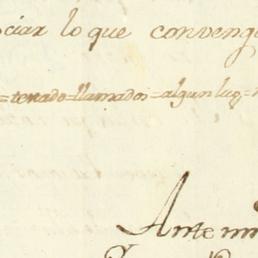 ciar lo que conveng
=tenado=llamados=algun lug=
Ante mi